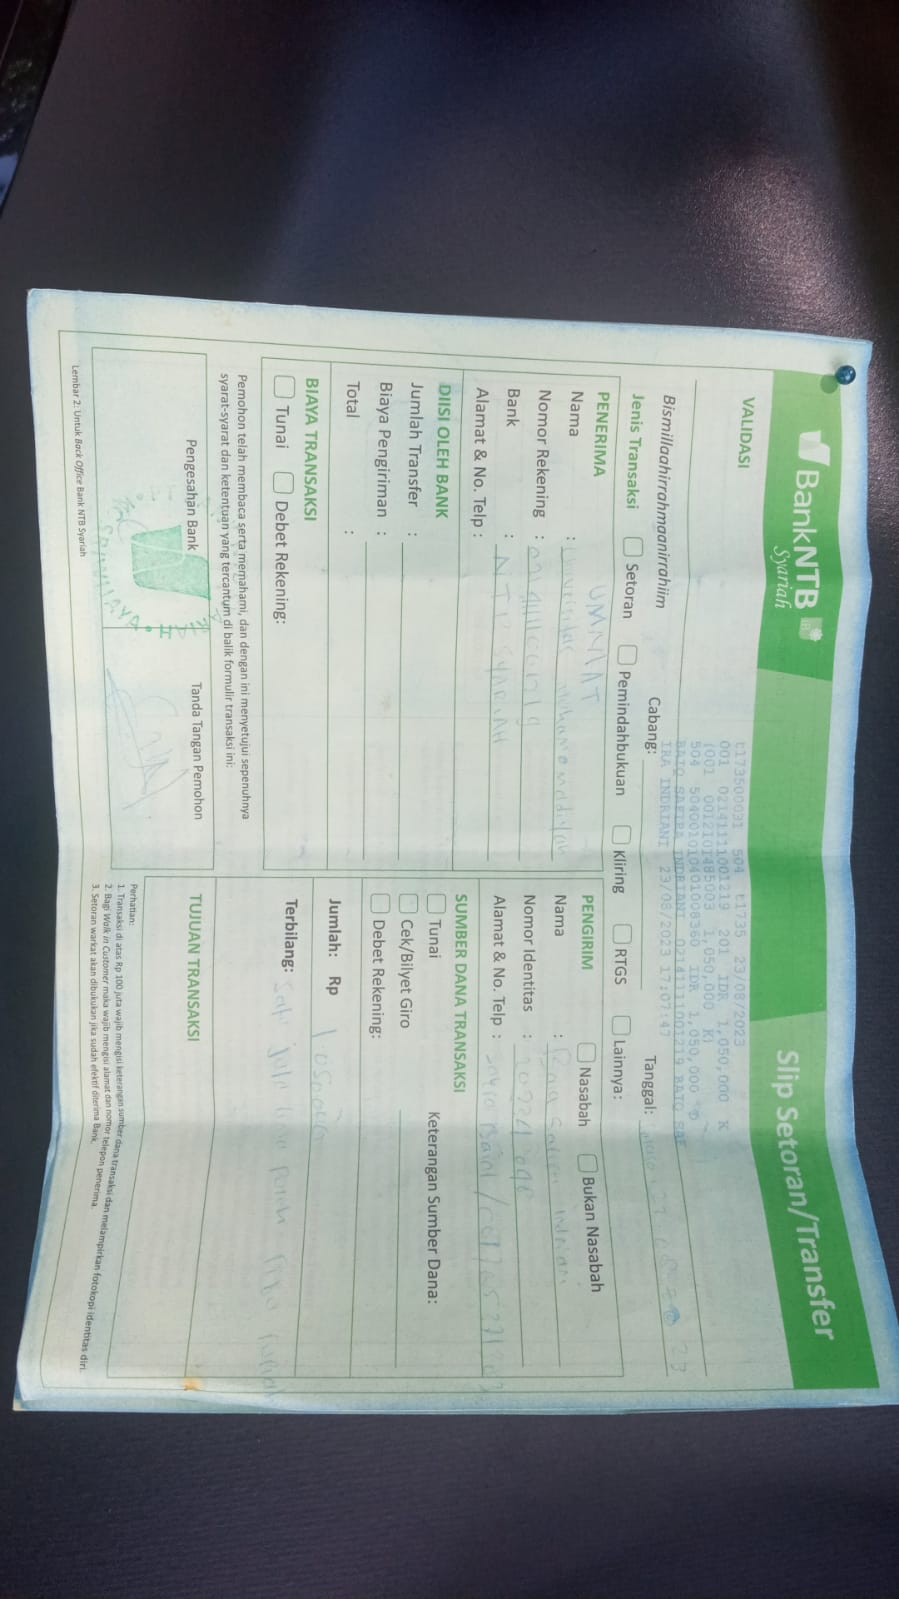 BankNTB
Syariah
Slip Setoran/Transfer
VALIDASI
t173500031 504 t1735 23/08/2023
001 0214111001219 201 IDR 1,050,000 K
1001 0012101485003 1,050,000 K)
504 504001010401008360 IDR 1,050,000 D
BAIQ SAFIRA INDRIANI 0214111001219 BAIQ SAF
IRA INDRIANI 23/08/2023 17:07:47
Bismillaahirrahmaanirrahiim
Cabang:
Tanggal: 23
Jenis Transaksi Setoran Pemindahbukuan Kliring RTGS Lainnya:
PENERIMA
UMMAT
Nama : Universitas Muhammadiyah
Nomor Rekening :
Bank : NTB SYARIAH
Alamat & No. Telp :
PENGIRIM Nasabah Bukan Nasabah
Nama : Baiq Safira Indriani
Nomor Identitas :
Alamat & No. Telp :
DIISI OLEH BANK
Jumlah Transfer :
Biaya Pengiriman :
Total :
SUMBER DANA TRANSAKSI
Tunai Keterangan Sumber Dana:
Cek/Bilyet Giro
Debet Rekening:
BIAYA TRANSAKSI
Tunai Debet Rekening:
Jumlah: Rp 1.050.000
Terbilang: Satu juta lima puluh ribu rupiah
Pemohon telah membaca serta memahami, dan dengan ini menyetujui sepenuhnya
syarat-syarat dan ketentuan yang tercantum di balik formulir transaksi ini:
Pengesahan Bank
Tanda Tangan Pemohon
TUJUAN TRANSAKSI
Perhatian:
1. Transaksi di atas Rp 100 juta wajib mengisi keterangan sumber dana transaksi dan melampirkan fotokopi identitas diri.
2. Bagi Walk in Customer maka wajib mengisi alamat dan nomor telepon penerima.
3. Setoran warkat akan dibukukan jika sudah efektif diterima Bank.
Lembar 2: Untuk Back Office Bank NTB Syariah